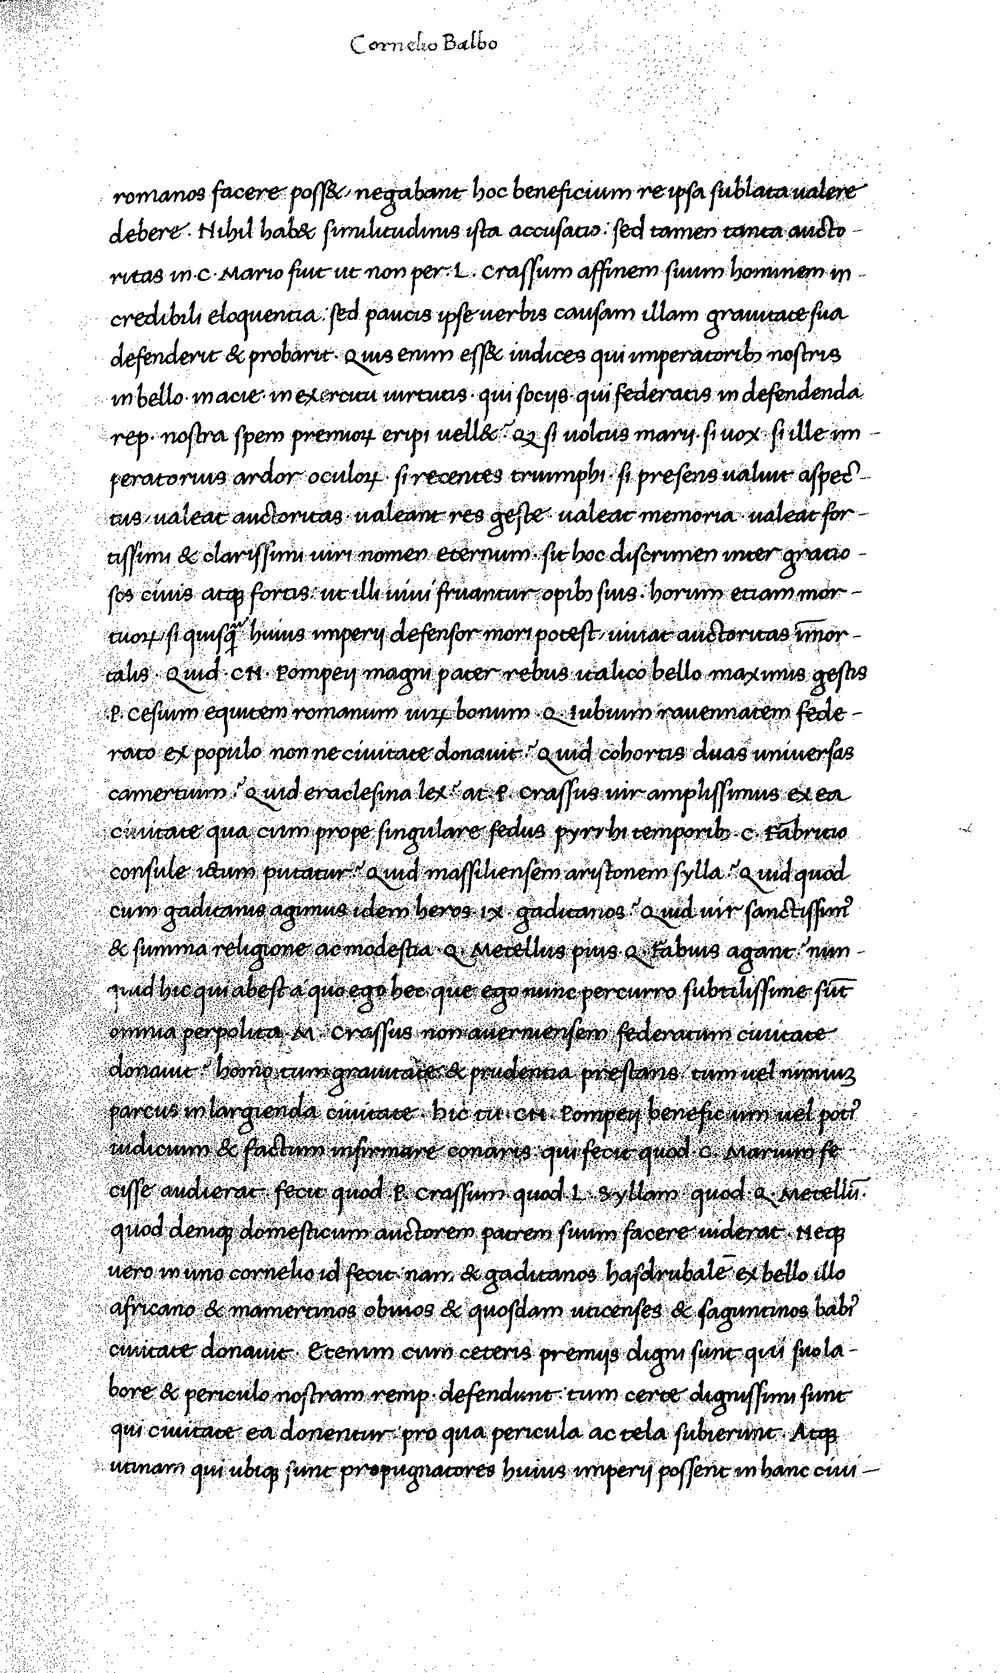 Cornelio Balbo
romanos facere poss& negabant hoc beneficium re ipsa sublata ualere
debere. Nihil hab& similitudinis ista accusatio. sed tamen tanta aucto-
ritas in C. Mario fuit ut non per. L. Crassum affinem suum hominem in-
credibili eloquentia. sed paucis ipse uerbis causam illam grauitate sua
defenderit & probarit. Quis enim ess& iudices qui imperatoribꝫ nostris
in bello. in acie. in exercitu uirtutis. qui socijs. qui federatis in defendenda
rep. nostra spem premioꝝ eripi uell&? Qꝫ si uoltus marij. si uox si ille im-
peratorius ardor oculoꝝ. si recentes triumphi. si presens ualuit aspec-
tus, ualeat auctoritas. ualeant res geste. ualeat memoria. ualeat for-
tissimi & clarissimi uiri nomen eternum. sit hoc discrimen inter gratio-
sos ciuis atqꝫ fortis: ut illi uiui fruantur opibꝫ suis. horum etiam mor-
tuoꝝ, si quisqᷓ huius imperij defensor mori potest, uiuat auctoritas im̅or-
talis. Quid. CN. Pompeij magni pater rebus italico bello maximis gestis
P. Cesium equitem romanum uiꝝ bonum. Q. Iubium rauennatem fede-
rato ex populo nonne ciuitate donauit? Quid cohortis duas uniuersas
camertium? Quid eraclesina lex? at. P. Crassus uir amplissimus ex ea
ciuitate qua cum prope singulare fedus pyrrhi temporibꝫ C. Fabritio
consule ictum putatur? Quid massiliensem aristonem sylla? Quid quod
cum gaditanis agimus idem heros ix gaditanos? Quid uir sanctissim᷒
& summa religione ac modestia. Q. Metellus pius Q. Fabius agant? num-
quid hic qui abest a quo ego hec que ego nunc percurro subtilissime su̅t
omnia perpolita. M. Crassus non auerniensem federatum ciuitate
donauit? homo tum grauitate & prudentia prestans. tum uel nimiuꝫ
parcus in largienda ciuitate. hic tu. CN. Pompeij beneficium uel poti᷒
iudicium & factum infirmare conaris. qui fecit quod. C. Marium fe
cisse audierat. fecit quod. P. Crassum quod. L. Syllam quod. Q. Metellu̅.
quod deniqꝫ domesticum auctorem patrem suum facere uiderat. Neqꝫ
uero in uno cornelio id fecit. nam & gaditanos hasdrubale̅ ex bello illo
africano & mamertinos obuios & quosdam uticenses & saguntinos babi᷒
ciuitate donauit. Etenim cum ceteris premijs digni sunt qui suo la-
bore & periculo nostram remp. defendunt. tum certe dignissimi sunt
qui ciuitate ea donentur pro qua pericula ac tela subierunt. Atqꝫ
utinam qui ubiqꝫ sunt propugnatores huius imperij possent in hanc ciui-